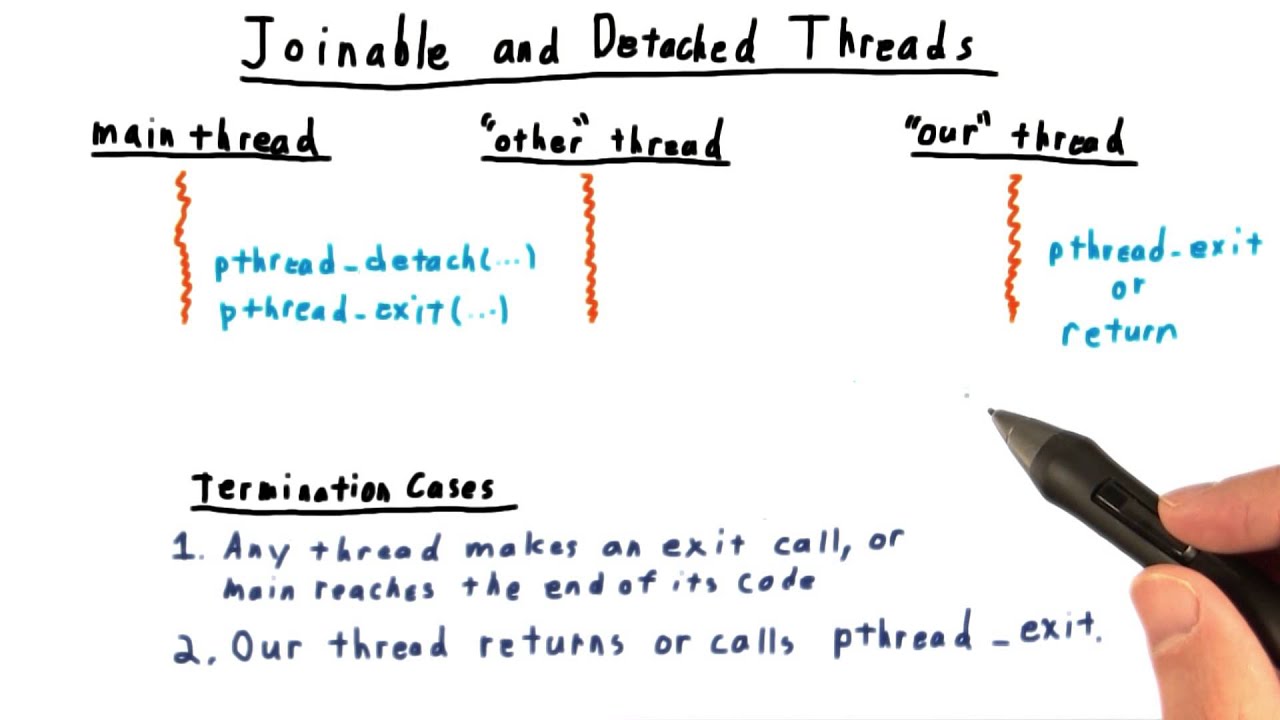 Joinable and Detached Threads
main thread
"other" thread
"our" thread
pthread_detach(...)
pthread_exit(...)
pthread_exit
or
return
Termination Cases
1. Any thread makes an exit call, or
main reaches the end of its code
2. Our thread returns or calls pthread_exit.